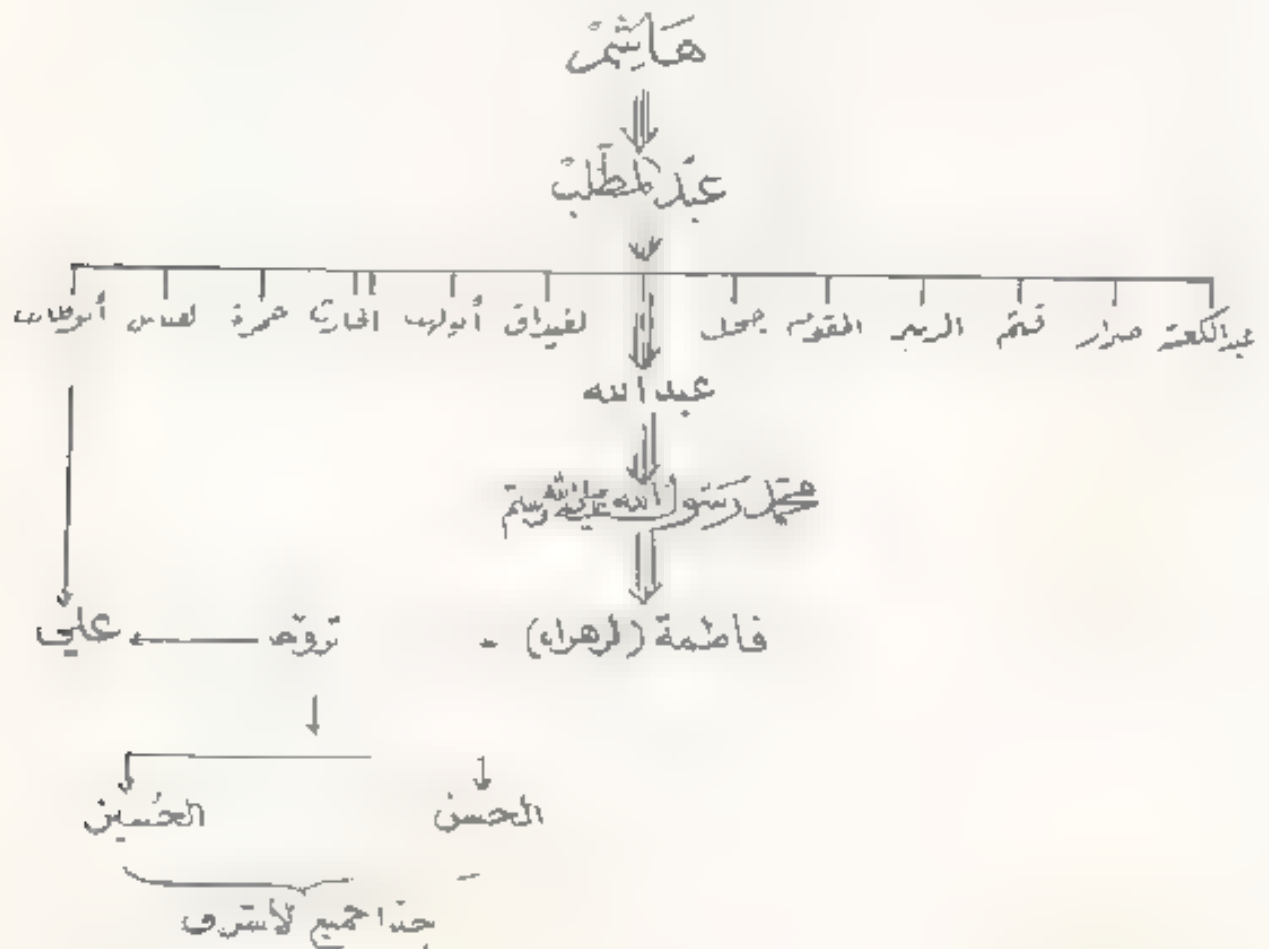 هَاشِمْ
عَبْدُ المطَّلِبْ
عبد الكعبة ضرار قثم الزبير المقوم جحل الغيداق أبو لهب الحارث حمزة العباس أبو طالب
عبد الله
محمّد رَسُول الله صلى الله عليه وسلم
فاطمة (الزهراء) - تزوّجه علي
الحسن الحُسين
جدّا جميع الأشراف